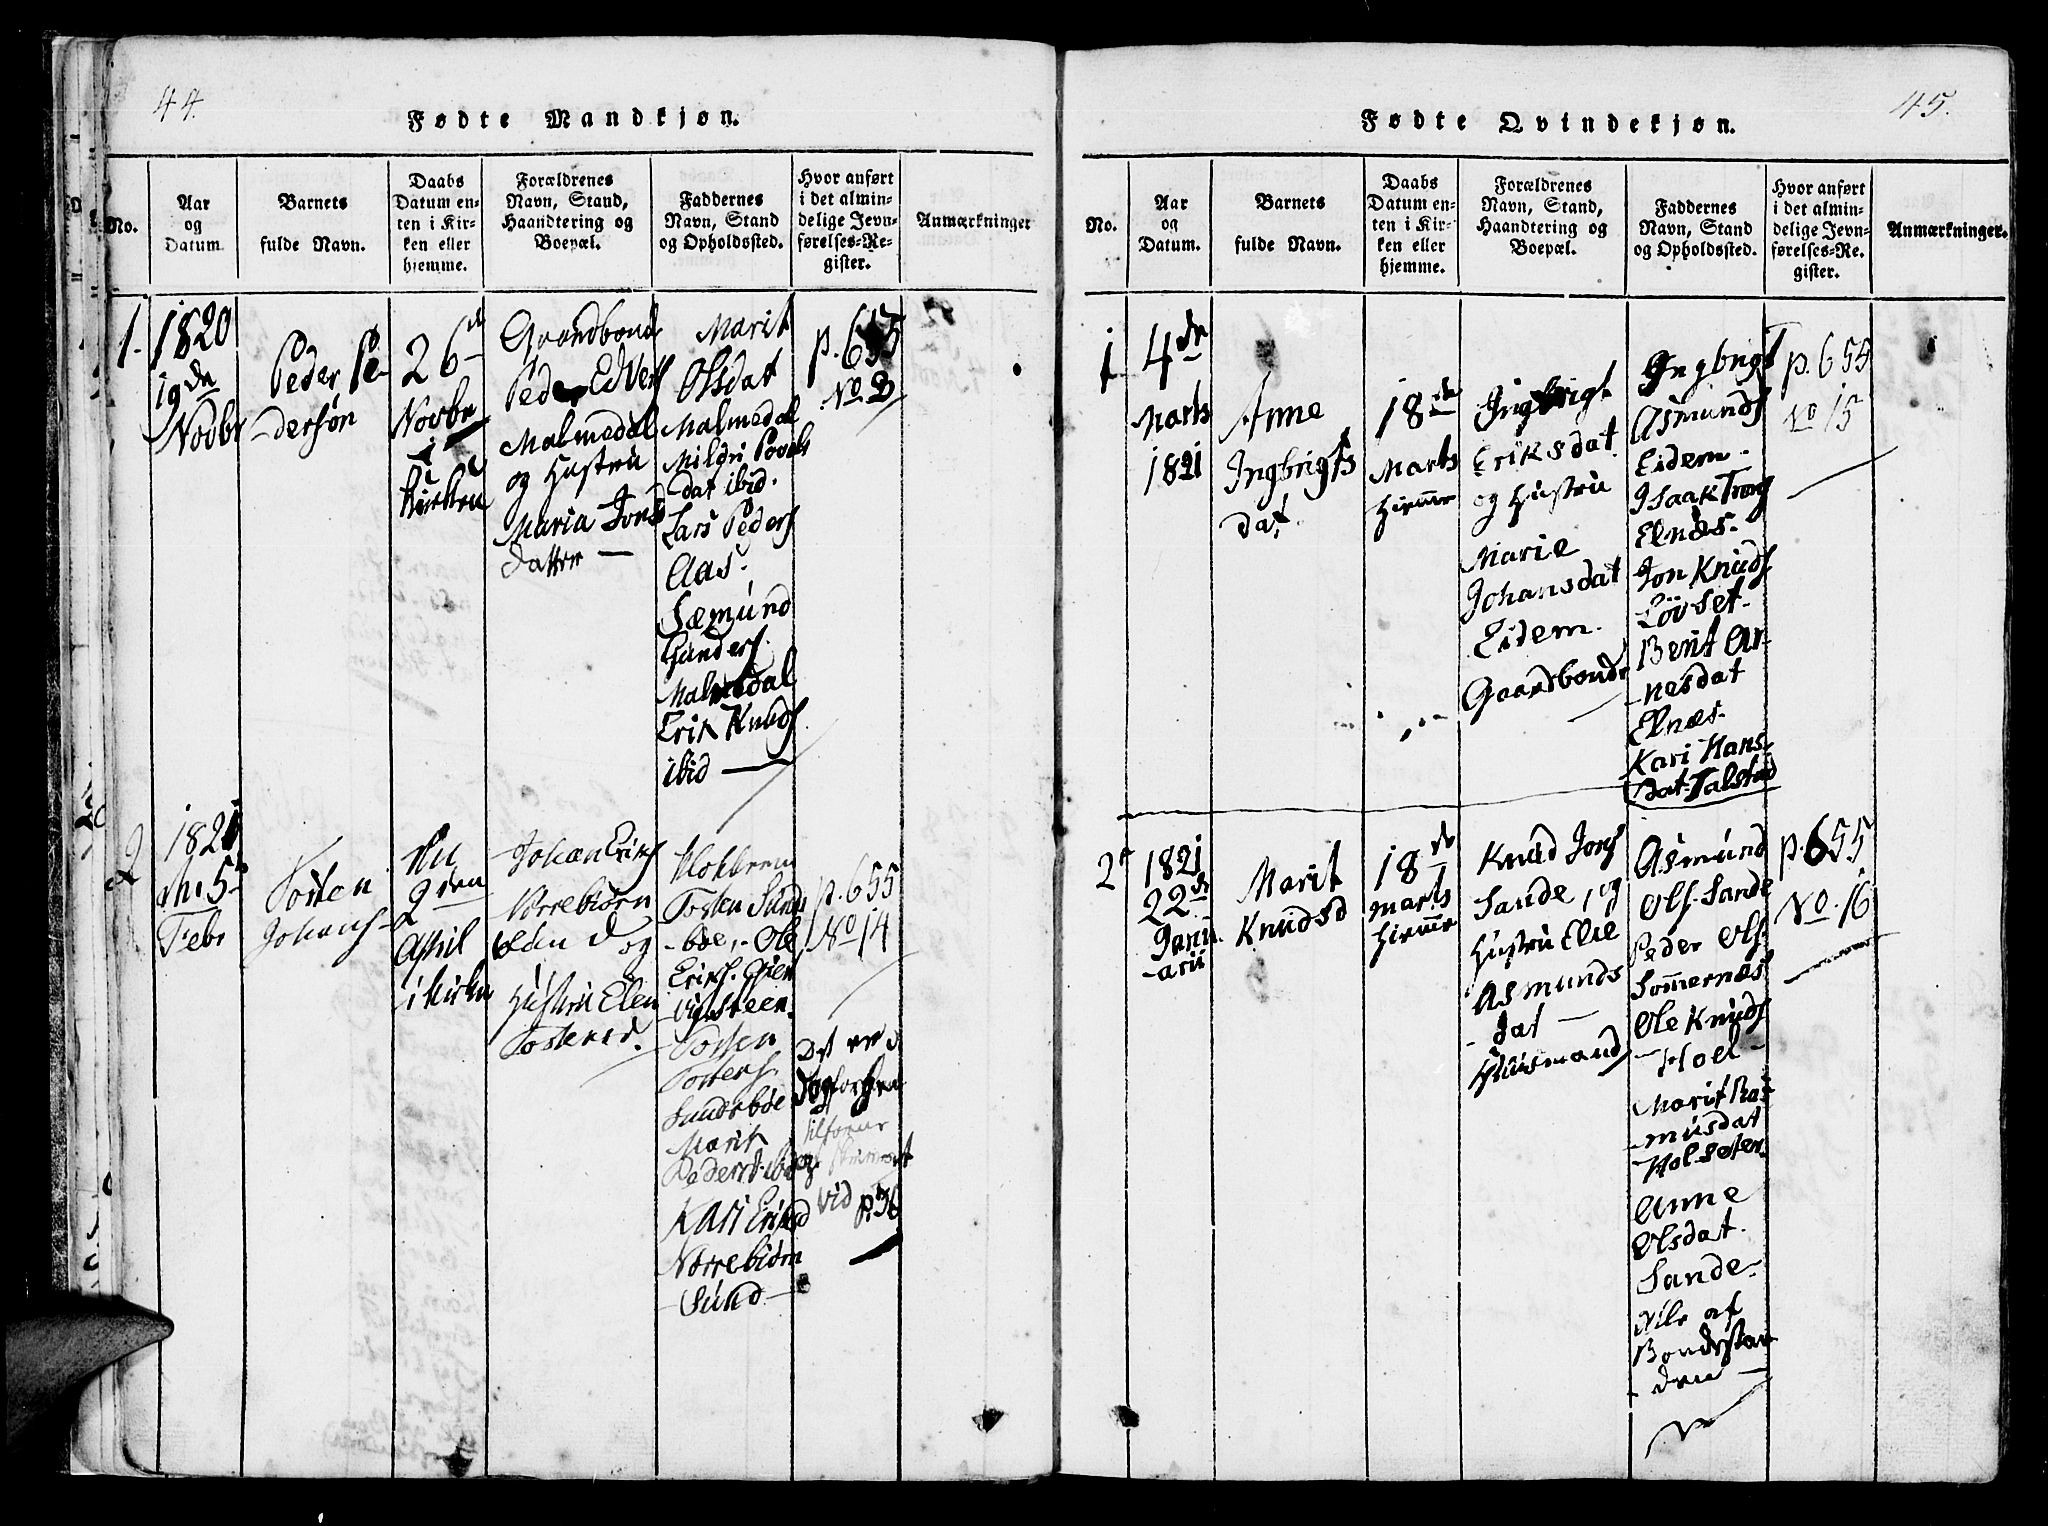 44.
Fødte Mandkjøn.
No.
Aar
og
Datum.
Barnets
fulde Navn.
Daabs
Datum en-
ten i Kir-
ken eller
hjemme.
Forældrenes
Navn, Stand,
Haandtering og
Boepæl.
Faddernes
Navn, Stand
og Opholdssted.
Hvor anført
i det almin-
delige Jevn-
førelses-Re-
gister.
Anmærkninger
1.
1820
19de
Novbr
Peder Pe-
-dersøn
26d
Novbr
i
Kirken
Gaardbonde
Peder Edvers
Malmedal
og Hustru
Maria Jons
datter —
Marit
Olsdat
Malmedal
Mildri Povels
-dat ibid.
Lars Peders
Aas.
Sæmund
Gunders.
Malmedal
Erik Knuds
ibid —
p. 655
No.
2
1821
5
Febr
Tosten
Johans-
2den
April
i Kirken
Johan Eriks
Norrebiørn
sund og
Hustru Elen
Tostensd.
Tosten Sunds
-bøe, - Ole
Eriks.
Tosten
Tostens.
Sundsbøe
Marit
Pedersd. ibid
Kari Eriksd
Norrebiørn
-Sund-
p. 655
No 14
Det er
vid p. 36
45.
Fødte Qvindekjøn.
No.
Aar
og
Datum.
Barnets
fulde Navn.
Daabs
Datum en-
ten i Kir-
ken eller
hjemme.
Forældrenes
Navn, Stand,
Haandtering og
Boepæl.
Faddernes
Navn, Stand
og Opholdssted.
Hvor anført
i det almin-
delige Jevn-
førelses-Re-
gister.
Anmærkninger.
1
4de
Marts
1821
Anne
Ingbrigts
dat.
18de
Marts
hiemme
Ingbrigt
Eriksdat
og Hustru
Marie
Johansdat
Eidem.
Gaardbonde
Ingbrigt
Asmunds
Eidem.
Isaak Trons
Elnæs.
Jon Knuds
Løvset.
Berit Ar-
-nesdat
Elnæs.
Kari Hans-
dat Talstad
p. 655
No 15
2
1821
22de
Janu-
-arii
Marit
Knudsd
18de
marts
hiemme
Knud Jons
Sande, og
Hustru Elie
Asmunds
-dat —
Huusmand
Asmund
Ols. Sande
Peder Ols.
Sommernæs
Ole Knuds
-Hoel-
Marit Ras-
-musdat
Holseter.
Anne
Olsdat.
Sande.
Alle af
Bondestan-
-den —
p. 655
No. 16